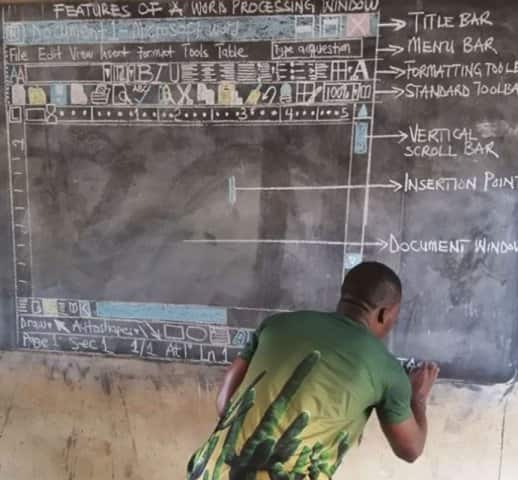 FEATURES OF A WORD PROCESSING WINDOW
Document 1 - Microsoft Word
TITLE BAR
File Edit View Insert Format Tools Table
Type a question
MENU BAR
AA
B I U
A
FORMATTING TOOLB
100%
STANDARD TOOLBA
1 2 3 4 5
VERTICAL
SCROLL BAR
INSERTION POINT
DOCUMENT WINDOW
Draw Autoshapes
Page 1 Sec 1 1/1 At Ln
TA